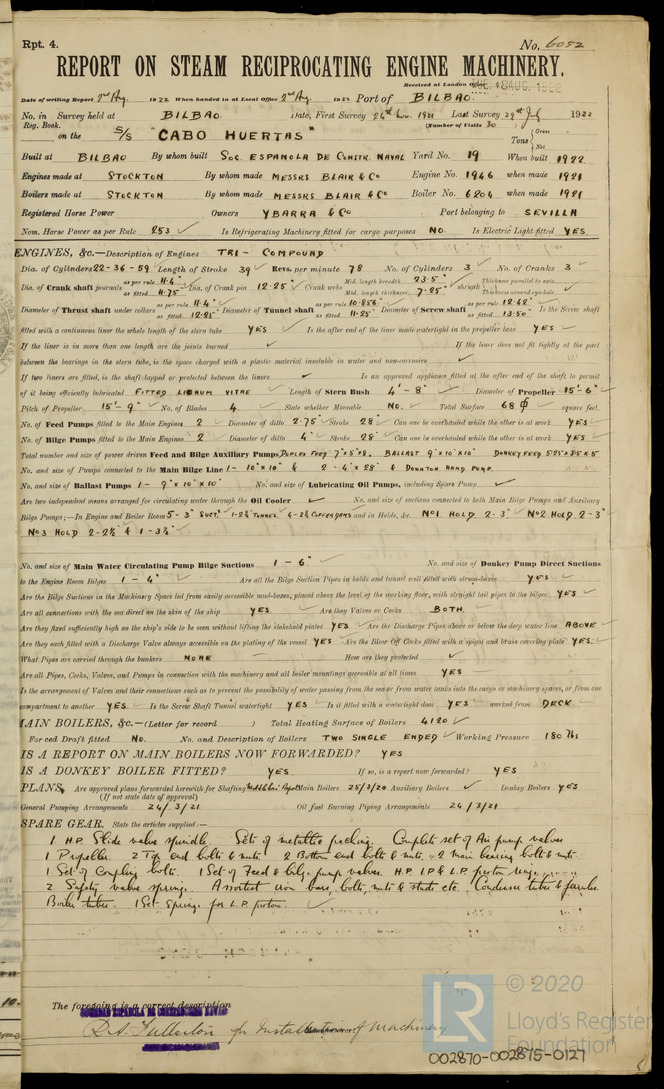 Rpt. 4.
No. 6052
REPORT ON STEAM RECIPROCATING ENGINE MACHINERY.
Received at London Office AUG. 1922
Date of writing Report 2nd Aug. 1922 When handed in at Local Office 2nd Aug. 1922 Port of BILBAO.
No. in Survey held at BILBAO Date, First Survey 24th Nov. 1921 Last Survey 29th July 1922
Reg. Book. (Number of Visits 30
on the S/S "CABO HUERTAS" Tons { Gross Net
Built at BILBAO By whom built SOC. ESPANOLA DE CONSTR. NAVAL Yard No. 19 When built 1922
Engines made at STOCKTON By whom made MESSRS BLAIR & CO Engine No. 1946 when made 1921
Boilers made at STOCKTON By whom made MESSRS BLAIR & CO Boiler No. 6204 when made 1921
Registered Horse Power Owners YBARRA & CO Port belonging to SEVILLA
Nom. Horse Power as per Rule 253 ✓ Is Refrigerating Machinery fitted for cargo purposes NO. Is Electric Light fitted YES
ENGINES, &c.—Description of Engines TRI - COMPOUND
Dia. of Cylinders 22-36-59 Length of Stroke 39 Revs. per minute 78 No. of Cylinders 3 No. of Cranks 3
Dia. of Crank shaft journals as per rule 11.4" as fitted 11.75" Dia. of Crank pin 12.25" Crank webs Mid. length breadth 23.5" Mid. length thickness 7.25" shrunk Thickness parallel to axis Thickness around eye-hole
Diameter of Thrust shaft under collars as per rule 11.4" as fitted 12.25" Diameter of Tunnel shaft as per rule 10.856" as fitted 11.25" Diameter of Screw shaft as per rule 12.42" as fitted 13.50" Is the Screw shaft
fitted with a continuous liner the whole length of the stern tube YES Is the after end of the liner made watertight in the propeller boss YES
If the liner is in more than one length are the joints burned ✓ If the liner does not fit tightly at the part
between the bearings in the stern tube, is the space charged with a plastic material insoluble in water and non-corrosive ✓
If two liners are fitted, is the shaft lapped or protected between the liners ✓ Is an approved appliance fitted at the after end of the shaft to permit
of it being efficiently lubricated FITTED LIGNUM VITAE Length of Stern Bush 4'-8" Diameter of Propeller 15'-6"
Pitch of Propeller 15'-9" No. of Blades 4. State whether Moveable NO. Total Surface 68 square feet.
No. of Feed Pumps fitted to the Main Engines 2 Diameter of ditto 2.75" Stroke 28" Can one be overhauled while the other is at work YES
No. of Bilge Pumps fitted to the Main Engines 2 Diameter of ditto 4" Stroke 28" Can one be overhauled while the other is at work YES
Total number and size of power driven Feed and Bilge Auxiliary Pumps DUPLEX FEED 7"x5"x8. BALLAST 9"x10"x10" DONKEY FEED 5.25"x3.5"x5
No. and size of Pumps connected to the Main Bilge Line 1- 10"x10" & 2 - 4"x28" & DOWNTON HAND PUMP.
No. and size of Ballast Pumps 1- 9"x10"x10" No. and size of Lubricating Oil Pumps, including Spare Pump ✓
Are two independent means arranged for circulating water through the Oil Cooler ✓ No. and size of suctions connected to both Main Bilge Pumps and Auxiliary
Bilge Pumps;—In Engine and Boiler Room 5-3" SUCT. 1-2½ TUNNEL 4-2½ COFFERDAMS and in Holds, &c. No1 HOLD 2-3" No2 HOLD 2-3"
No3 HOLD 2-2½ & 1-3½"
No. and size of Main Water Circulating Pump Bilge Suctions 1 - 6" No. and size of Donkey Pump Direct Suctions
to the Engine Room Bilges 1 - 4" Are all the Bilge Suction Pipes in holds and tunnel well fitted with strum-boxes YES
Are the Bilge Suctions in the Machinery Space led from easily accessible mud-boxes, placed above the level of the working floor, with straight tail pipes to the bilges YES
Are all connections with the sea direct on the skin of the ship YES. Are they Valves or Cocks BOTH.
Are they fixed sufficiently high on the ship's side to be seen without lifting the stokehold plates YES Are the Discharge Pipes above or below the deep water line ABOVE
Are they each fitted with a Discharge Valve always accessible on the plating of the vessel YES Are the Blow Off Cocks fitted with a spigot and brass covering plate YES.
What Pipes are carried through the bunkers NONE How are they protected ✓
Are all Pipes, Cocks, Valves, and Pumps in connection with the machinery and all boiler mountings accessible at all times YES
Is the arrangement of Valves and their connections such as to prevent the possibility of water passing from the sea or from water tanks into the cargo or machinery spaces, or from one
compartment to another YES. Is the Screw Shaft Tunnel watertight YES Is it fitted with a watertight door YES worked from DECK
MAIN BOILERS, &c.—(Letter for record ) Total Heating Surface of Boilers 4120
Forced Draft fitted No. No. and Description of Boilers TWO SINGLE ENDED Working Pressure 180 lbs
IS A REPORT ON MAIN BOILERS NOW FORWARDED? YES
IS A DONKEY BOILER FITTED? YES If so, is a report now forwarded? YES
PLANS. Are approved plans forwarded herewith for Shafting Main Boilers 25/3/20 Auxiliary Boilers ✓ Donkey Boilers YES
(If not state date of approval)
General Pumping Arrangements 24/3/21 Oil fuel Burning Piping Arrangements 24/3/21
SPARE GEAR. State the articles supplied:—
1 H.P. Slide valve spindle. Sets of metallic packing. Complete set of Air pump valves
1 Propeller. 2 Top end bolts & nuts. 2 Bottom end bolts & nuts. 2 main bearing bolts & nuts.
1 Set of Coupling bolts. 1 Set of Feed & bilge pump valves. H.P. I.P & L.P. piston rings.
2 Safety valve springs. Assorted iron bars, bolts, nuts & studs etc. Condenser tubes & ferrules.
Boiler tubes. 1 Set springs for L.P. piston.
The foregoing is a correct description
SOCIEDAD ESPAÑOLA DE CONSTRUCCION NAVAL
for Installation of Machinery
10.
LR © 2020
Lloyd's Register
Foundation
002870-002875-0127